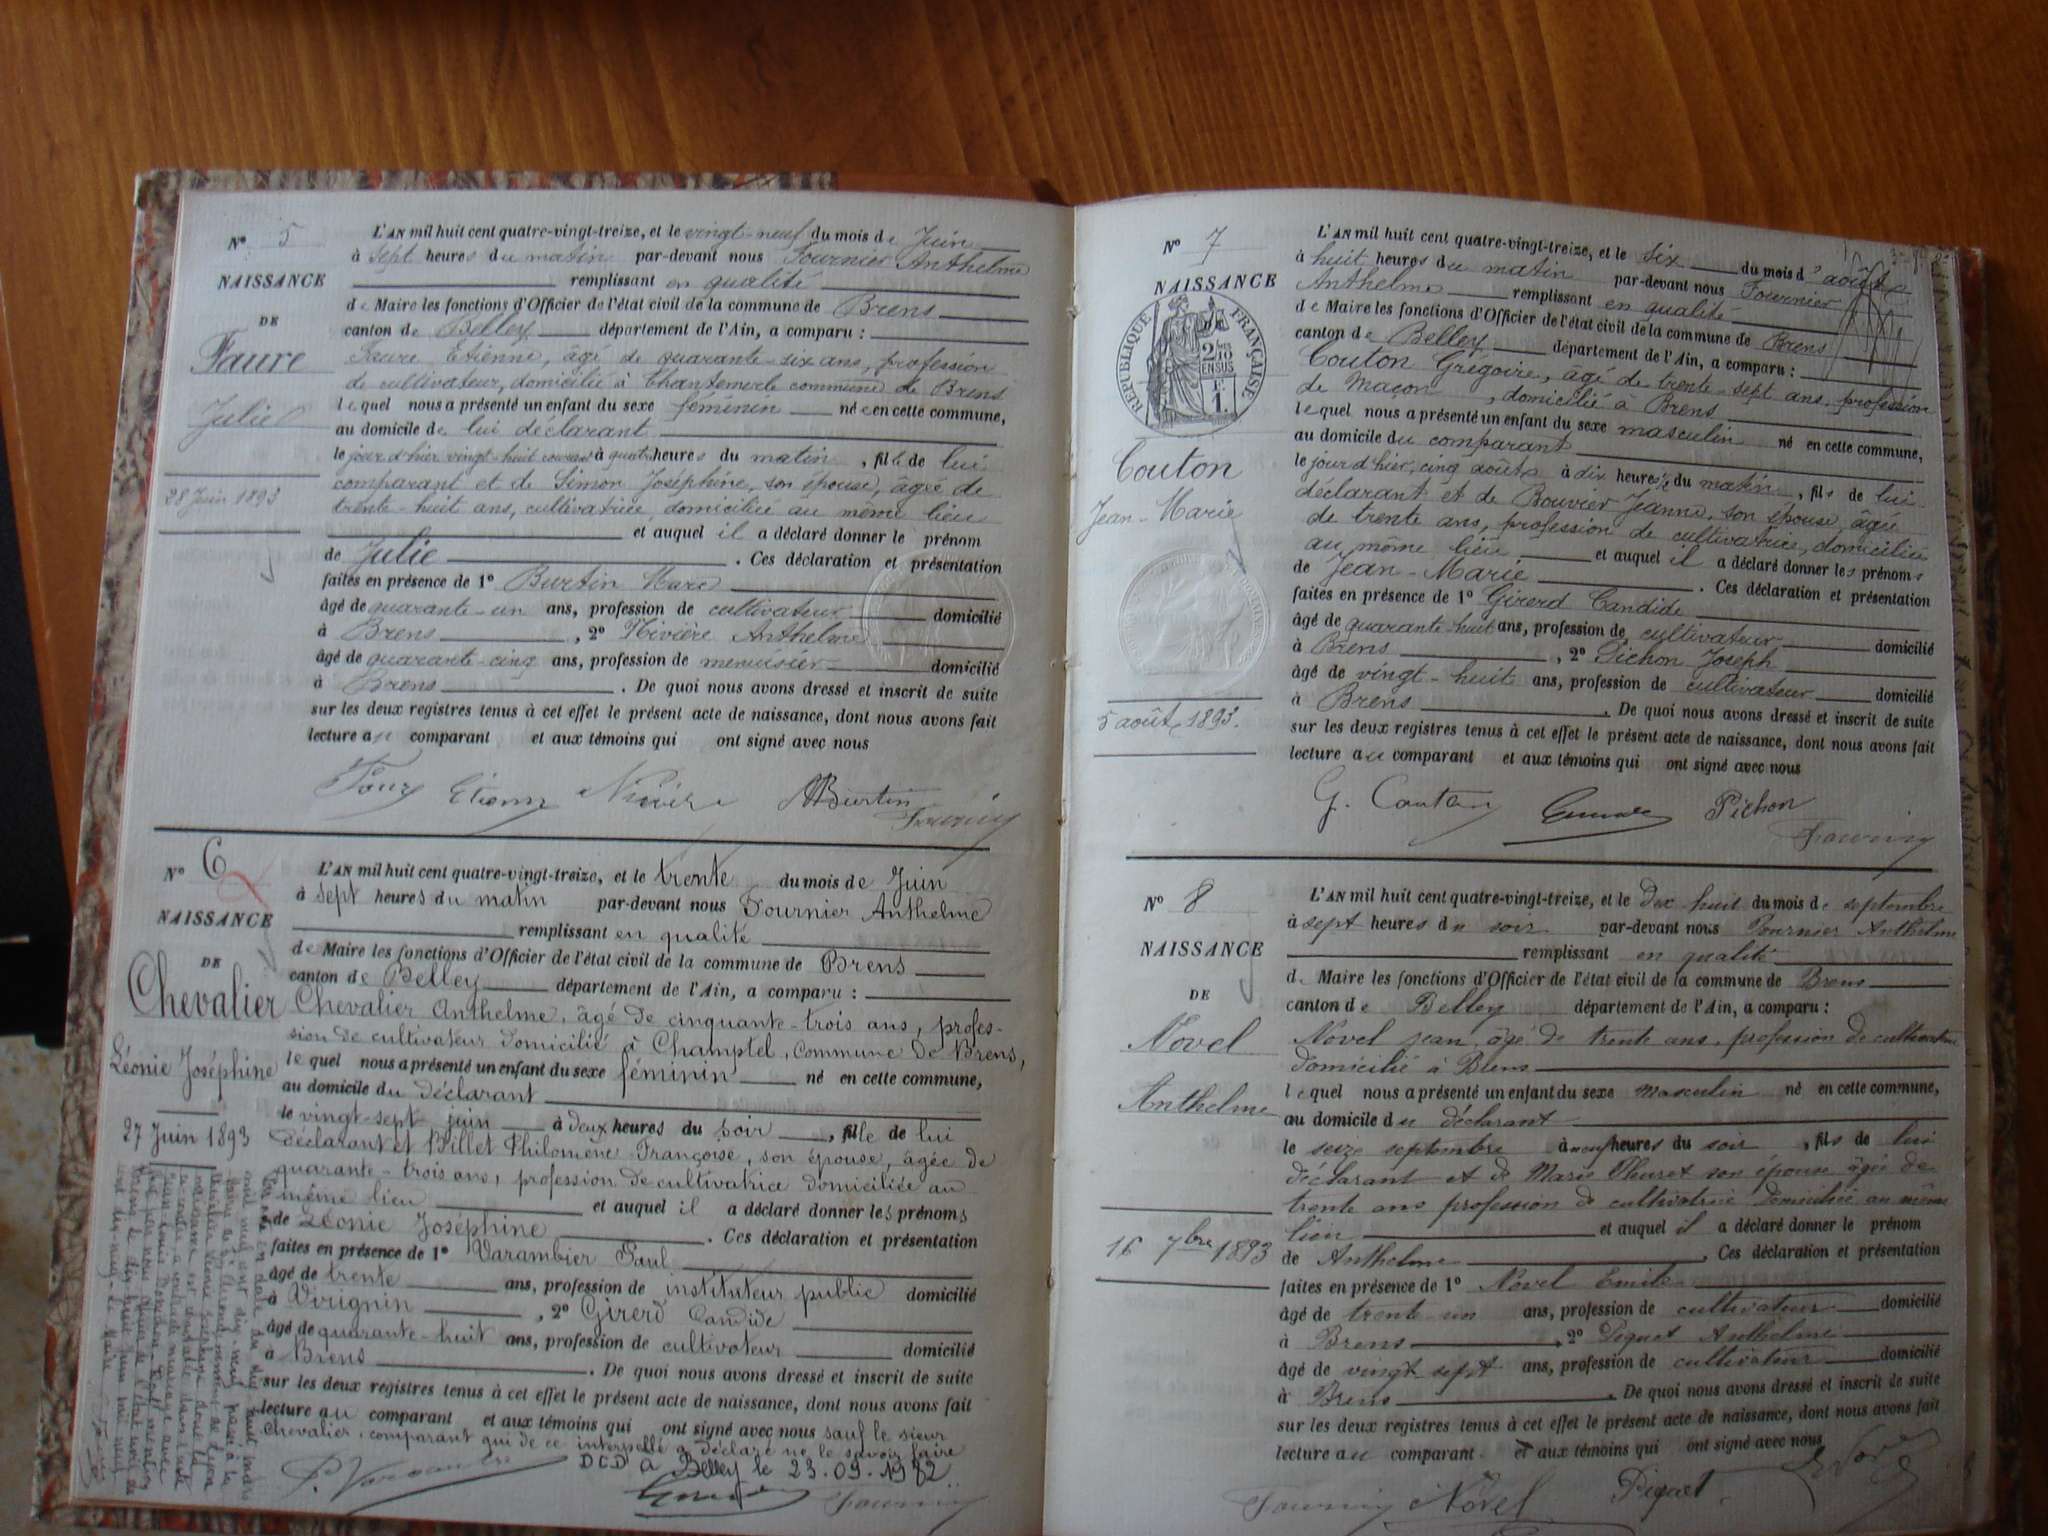 N° 5
NAISSANCE
DE
Faure
Julie
28 Juin 1893
L'AN mil huit cent quatre-vingt-treize, et le vingt-neuf du mois de Juin
à sept heures du matin par-devant nous Fournier Anthelme
remplissant en qualité
de Maire les fonctions d'Officier de l'état civil de la commune de Brens
canton de Belley département de l'Ain, a comparu :
Faure Etienne, âgé de quarante-six ans, profession
de cultivateur, domicilié à Chantemerle commune de Brens
lequel nous a présenté un enfant du sexe féminin né e en cette commune,
au domicile de lui déclarant
le jour d'hier vingt-huit courant à quatre heures du matin, fille de lui
comparant et de Simon Joséphine, son épouse, âgée de
trente-huit ans, cultivatrice, domiciliée au même lieu
et auquel il a déclaré donner le prénom
de Julie. Ces déclaration et présentation
faites en présence de 1° Burtin Marc
âgé de quarante-un ans, profession de cultivateur domicilié
à Brens, 2° Nivière Anthelme
âgé de quarante-cinq ans, profession de menuisier domicilié
à Brens. De quoi nous avons dressé et inscrit de suite
sur les deux registres tenus à cet effet le présent acte de naissance, dont nous avons fait
lecture au comparant et aux témoins qui ont signé avec nous
Etienne Nivière Burtin
Fournier
N° 6
NAISSANCE
DE
Chevalier
Léonie Joséphine
27 Juin 1893
L'AN mil huit cent quatre-vingt-treize, et le trente du mois de Juin
à sept heures du matin par-devant nous Fournier Anthelme
remplissant en qualité
de Maire les fonctions d'Officier de l'état civil de la commune de Brens
canton de Belley département de l'Ain, a comparu :
Chevalier Anthelme, âgé de cinquante-trois ans, profes-
sion de cultivateur domicilié à Champtel, commune de Brens,
lequel nous a présenté un enfant du sexe féminin né en cette commune,
au domicile du déclarant
le vingt-sept juin à deux heures du soir, fille de lui
déclarant et Billet Philomène Françoise, son épouse, âgée de
quarante-trois ans, profession de cultivatrice domiciliée au
même lieu et auquel il a déclaré donner les prénoms
de Léonie Joséphine. Ces déclaration et présentation
faites en présence de 1° Varambier Paul
âgé de trente ans, profession de instituteur public domicilié
à Virignin, 2° Girerd Candide
âgé de quarante-huit ans, profession de cultivateur domicilié
à Brens. De quoi nous avons dressé et inscrit de suite
sur les deux registres tenus à cet effet le présent acte de naissance, dont nous avons fait
lecture au comparant et aux témoins qui ont signé avec nous sauf le sieur
Chevalier, comparant qui de ce interpellé a déclaré ne le savoir faire
DCD à Belley le 23.09.1982
Fournier
N° 7
NAISSANCE
DE
RÉPUBLIQUE FRANÇAISE
2/10 EN SUS
F. 1
Couton
Jean-Marie
5 août 1893.
L'AN mil huit cent quatre-vingt-treize, et le six du mois d'août
à huit heures du matin par-devant nous Fournier
Anthelme remplissant en qualité
de Maire les fonctions d'Officier de l'état civil de la commune de Brens
canton de Belley département de l'Ain, a comparu :
Couton Grégoire, âgé de trente-sept ans, profession
de Maçon, domicilié à Brens
lequel nous a présenté un enfant du sexe masculin né en cette commune,
au domicile du comparant
le jour d'hier, cinq août à dix heures du matin, fils de lui
déclarant et de Bouvier Jeanne, son épouse, âgée
de trente ans, profession de cultivatrice, domiciliée
au même lieu et auquel il a déclaré donner les prénoms
de Jean-Marie. Ces déclaration et présentation
faites en présence de 1° Girerd Candide
âgé de quarante-huit ans, profession de cultivateur domicilié
à Brens, 2° Pichon Joseph
âgé de vingt-huit ans, profession de cultivateur domicilié
à Brens. De quoi nous avons dressé et inscrit de suite
sur les deux registres tenus à cet effet le présent acte de naissance, dont nous avons fait
lecture au comparant et aux témoins qui ont signé avec nous
G. Couton Pichon
Fournier
N° 8
NAISSANCE
DE
Novel
Anthelme
16 7bre 1893
L'AN mil huit cent quatre-vingt-treize, et le Dix huit du mois de septembre
à sept heures du soir par-devant nous Fournier Anthelme
remplissant en qualité
de Maire les fonctions d'Officier de l'état civil de la commune de Brens
canton de Belley département de l'Ain, a comparu :
Novel Jean, âgé de trente ans, profession de cultivateur
domicilié à Brens
lequel nous a présenté un enfant du sexe Masculin né en cette commune,
au domicile du déclarant
le seize septembre à neuf heures du soir, fils de lui
déclarant et de Marie Thuret son épouse âgée de
trente ans profession de cultivatrice domiciliée au même
lieu et auquel il a déclaré donner le prénom
de Anthelme. Ces déclaration et présentation
faites en présence de 1° Novel Emile
âgé de trente un ans, profession de cultivateur domicilié
à Brens, 2° Piquet Anthelme
âgé de vingt sept ans, profession de cultivateur domicilié
à Brens. De quoi nous avons dressé et inscrit de suite
sur les deux registres tenus à cet effet le présent acte de naissance, dont nous avons fait
lecture au comparant et aux témoins qui ont signé avec nous
Fournier Novel Piquet